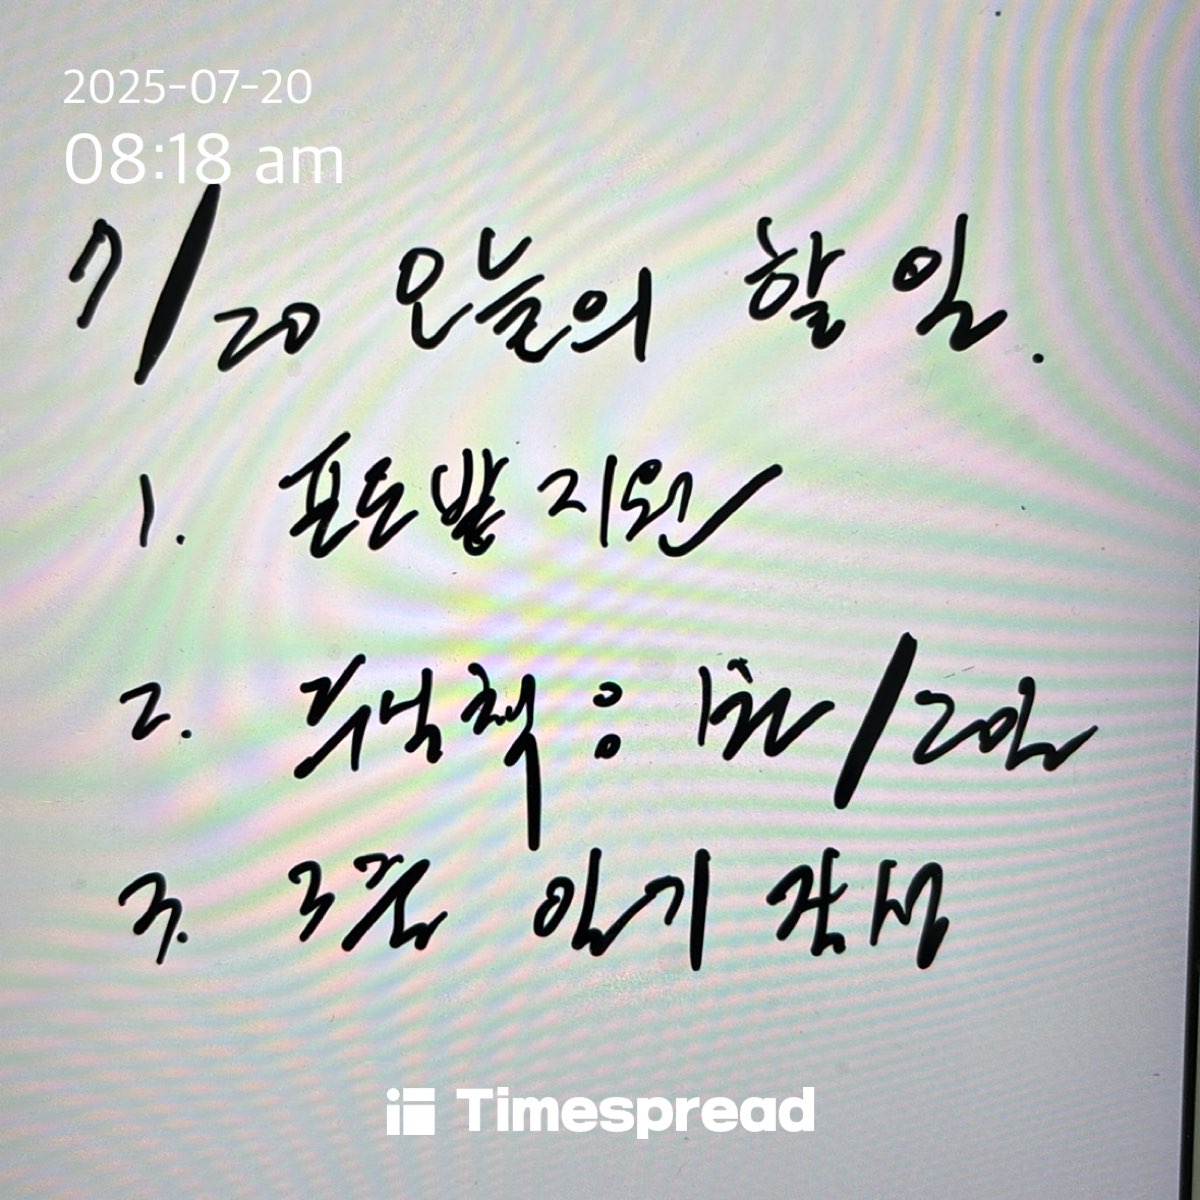 2025-07-20
08:18 am
7/20 오늘의 할 일.
1. 포도밭 지원
2. : /20일
3. 3줄 일기
Timespread